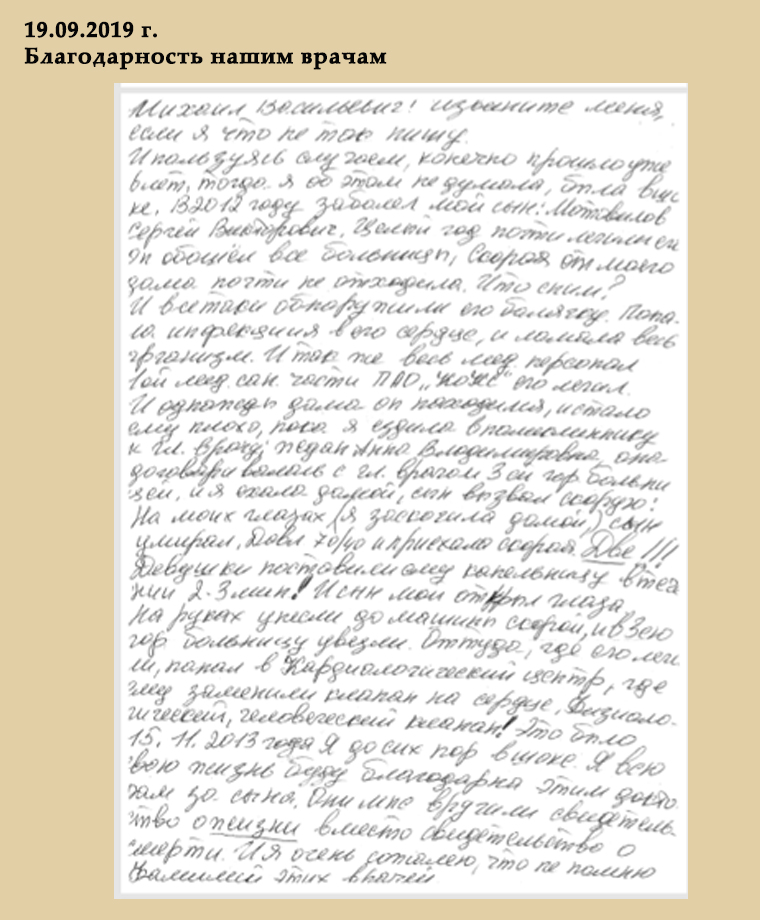 19.09.2019 г.
Благодарность нашим врачам
Михаил Васильевич! извините меня,
если я что не так пишу.
Ипользуясь случаем, конечно прошло уже
6 лет, тогда я об этом не думала, была в шо
ке. В 2012 году заболел мой сын: Мотовилов
Сергей Викторович. Целый год почти лечились
он обошёл все больницы, Скорая от моего
дома почти не отходила. Что с ним?
И всетаки обнаружили его болячку. Попа-
ла инфекция в его сердце, и ломала весь
организм. И так же весь мед. персонал
1ой мед. сан. части ПАО его лечил.
И однажды дома он находился, и стало
ему плохо, пока я ездила в поликлиннику
к гл. врачу Анна Владимировна, она
договаривалась с гл. врачом 3ей гор. больни
цей, и я ехала домой, сын вызвал скорую!
На моих глазах (я заскочила домой) сын
умирал, Давл 70/40 и приехала скорая. Две!!!
Девушки поставили ему капельницу в теч
нии 2-3 мин! И сын мой открыл глаза
На руках унесли до машины скорой, и в 3ею
гор. больницу увезли. Оттуда, где его лечи
ли, попал в Кардиологический центр, где
ему заменили клапан на сердце, Физиоло-
гический, человеческий клапан! Это было
15.11.2013 года Я до сих пор в шоке. Я всю
свою жизнь буду благодарна этим докто
рам за сына. Они мне вручили свидетель-
ство о жизни вместо свидетельство о
смерти. И я очень сожалею, что не помню
Фамилий этих врачей